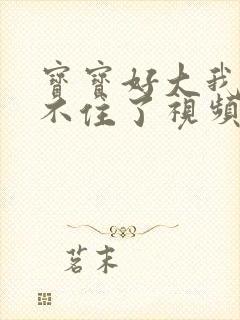 寶寶好大我
不住了視頻
茗末